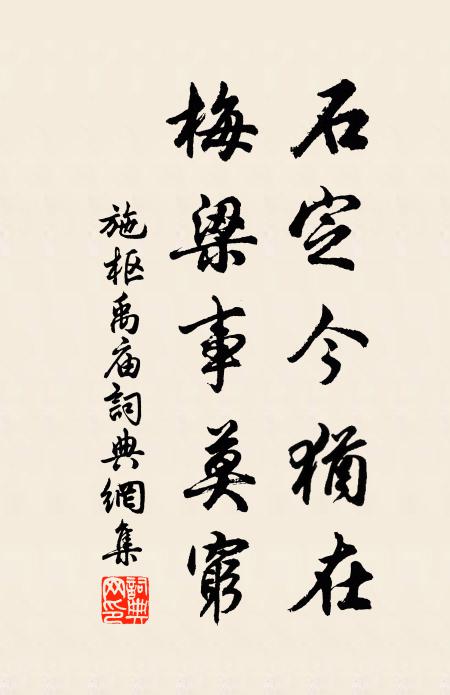 石窆今猶在
梅梁事莫窮
施枢禹庙詞典網集
詞典
网印